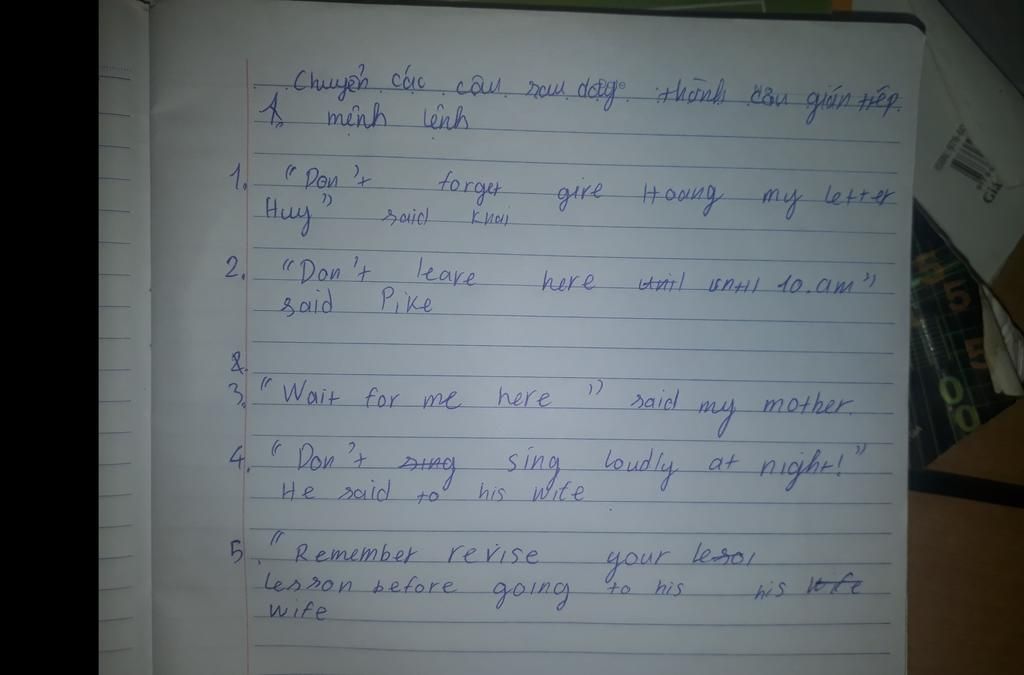 Chuyển các câu sau dạng thành câu gián tiếp
A, mệnh lệnh
1. "Don't forget give Hoang my letter
Huy" said Khai
2. "Don't leave here until until 10.am"
said Pike
2.
3. "Wait for me here" said my mother.
4. "Don't sing sing loudly at night!"
He said to his wife
5. "Remember revise your lesol
lesson before going to his his wife
wife